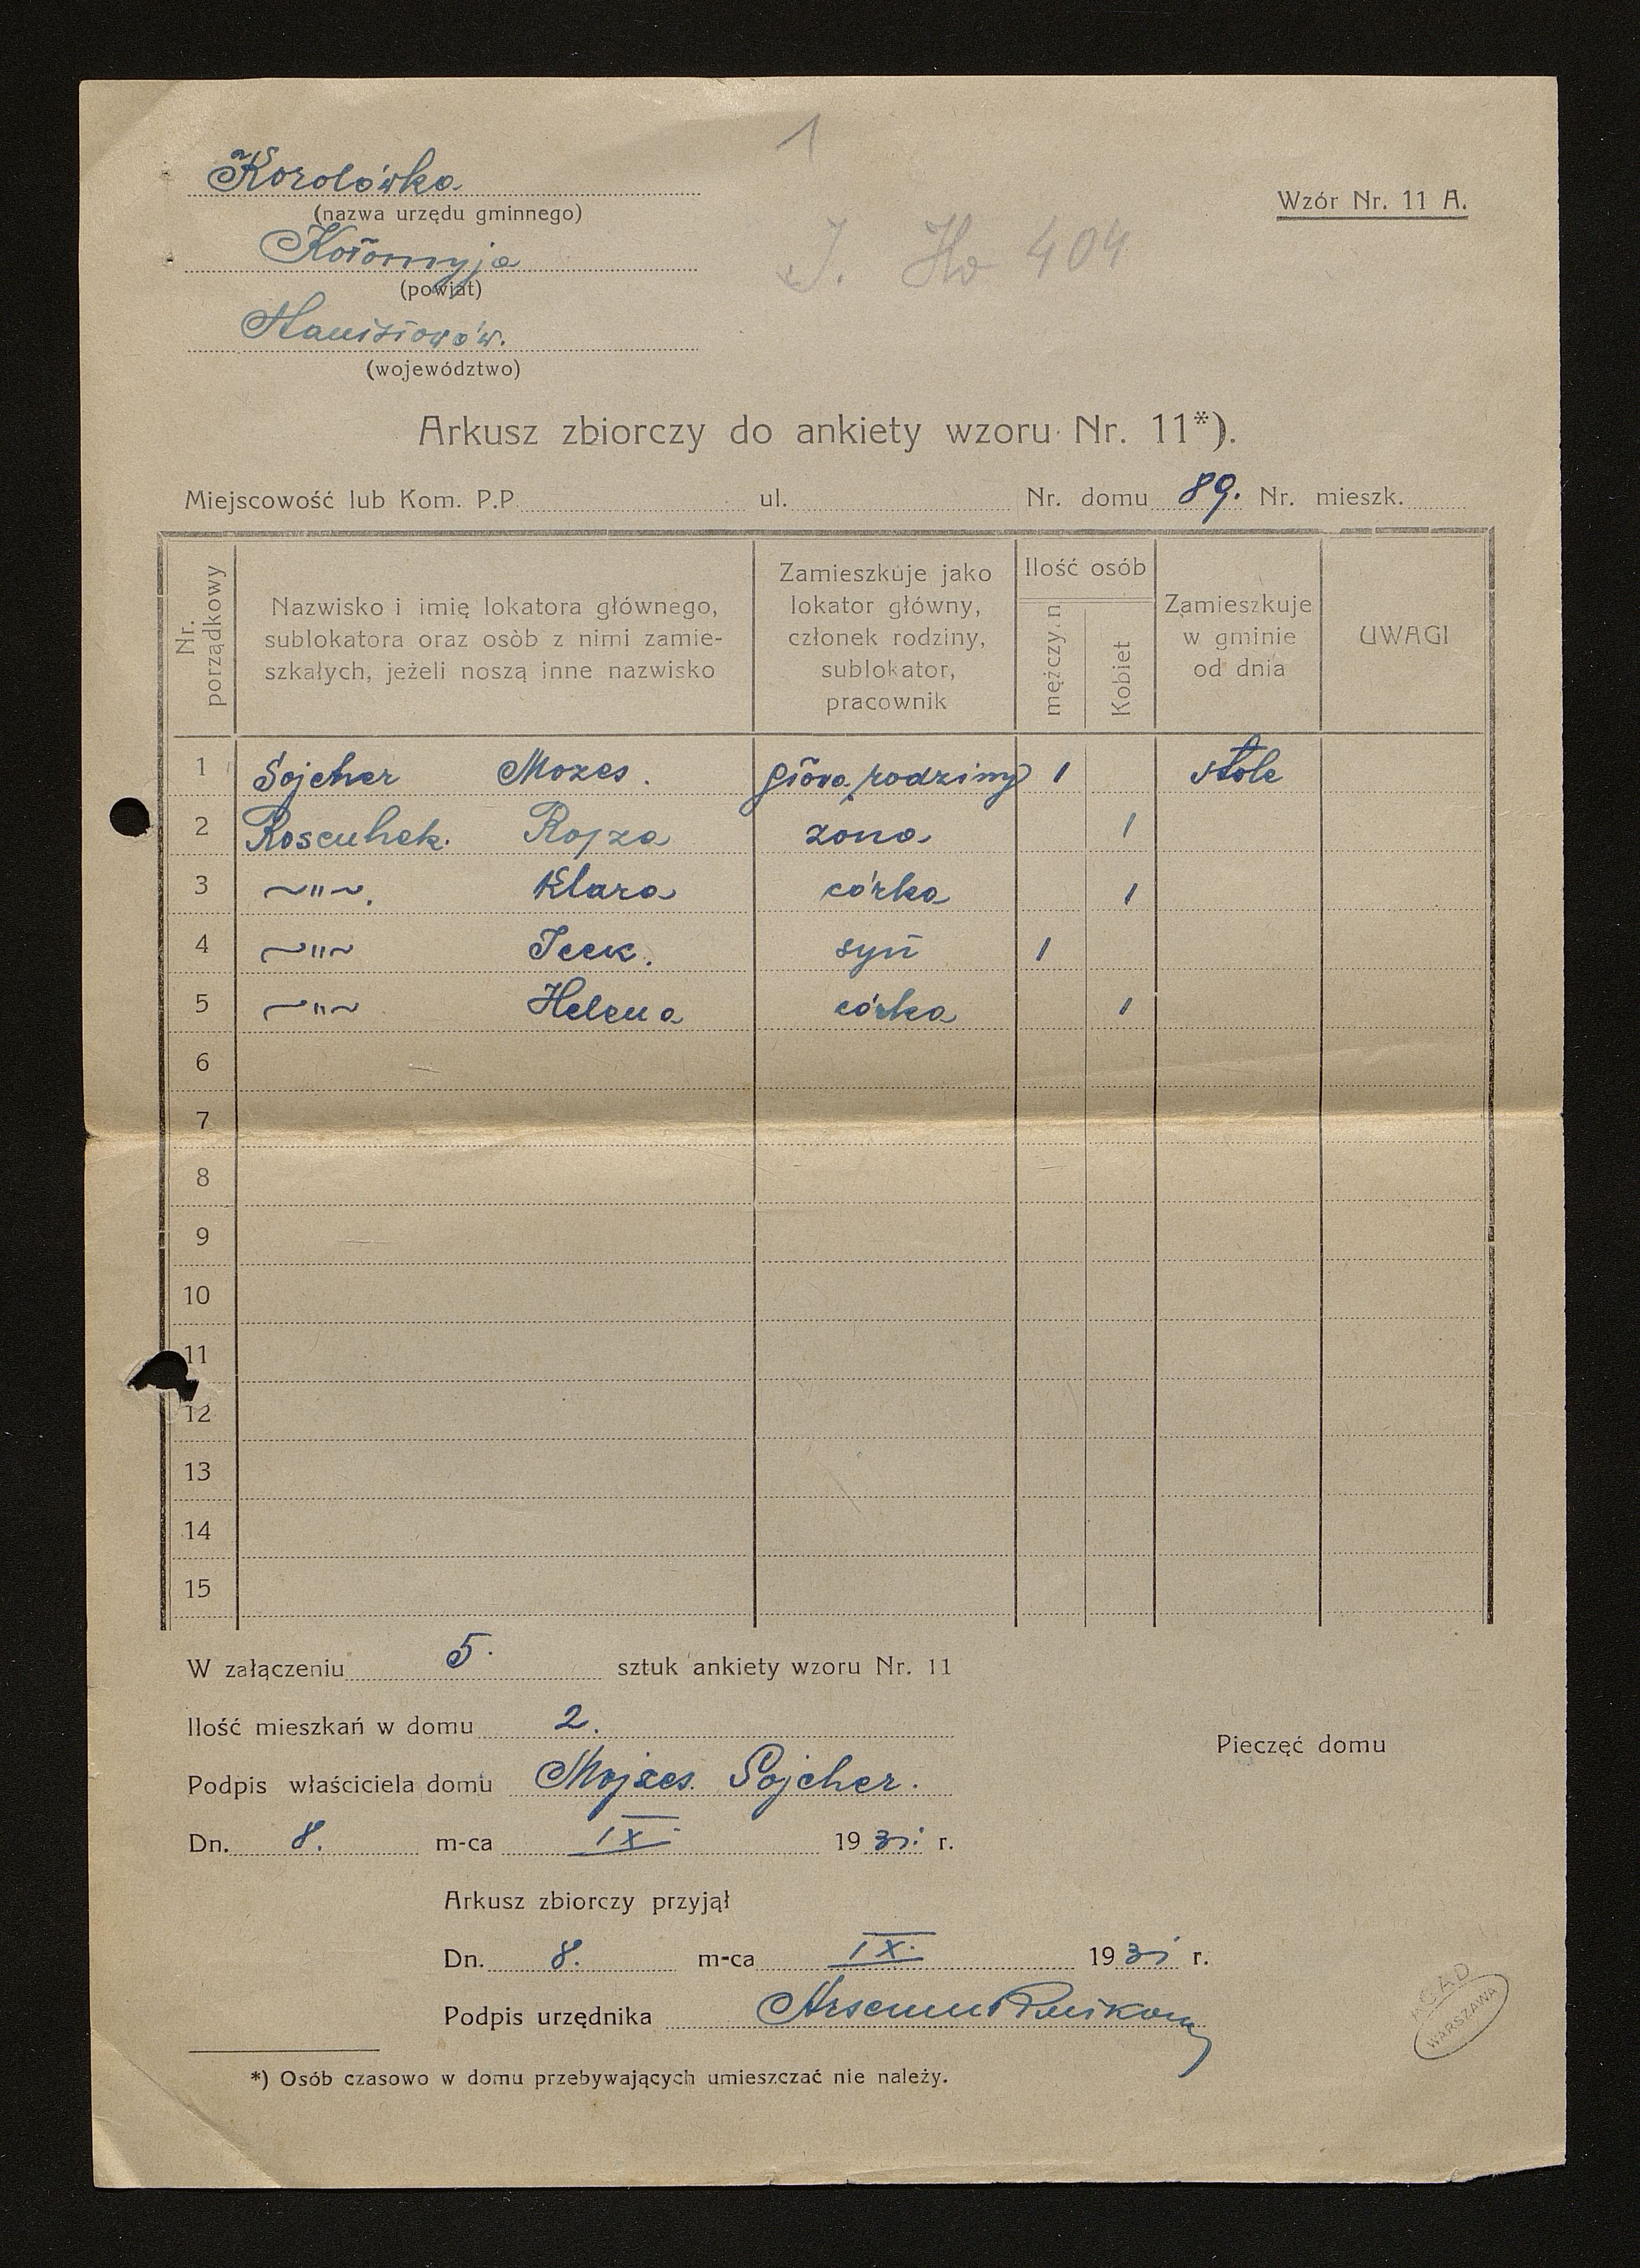 1
Korolówka
(nazwa urzędu gminnego)
Wzór Nr. 11 A.
Kołomyja
(powiat)
J. Hb 404
Stanisławów.
(województwo)
Arkusz zbiorczy do ankiety wzoru Nr. 11*).
Miejscowość lub Kom. P.P. ul. Nr. domu 89. Nr. mieszk.
Nr. porządkowy
Nazwisko i imię lokatora głównego, sublokatora oraz osòb z nimi zamieszkałych, jeżeli noszą inne nazwisko
Zamieszkuje jako lokator główny, członek rodziny, sublokator, pracownik
Ilość osób
mężczyzn
Kobiet
Zamieszkuje w gminie od dnia
UWAGI
1 Sojcher Mozes. głowa rodziny 1 stale
2 Rosenhek. Rojza żona 1
3 ~"~. Klara córka 1
4 ~"~ Icek. syn 1
5 ~"~ Helena córka 1
6
7
8
9
10
11
12
13
14
15
W załączeniu 5. sztuk ankiety wzoru Nr. 11
Ilość mieszkań w domu 2.
Pieczęć domu
Podpis właściciela domu Mojzes Sojcher.
Dn. 8. m-ca IX. 1931. r.
Arkusz zbiorczy przyjął
Dn. 8. m-ca IX. 1931 r.
Podpis urzędnika
AGAD
WARSZAWA
*) Osób czasowo w domu przebywających umieszczać nie należy.